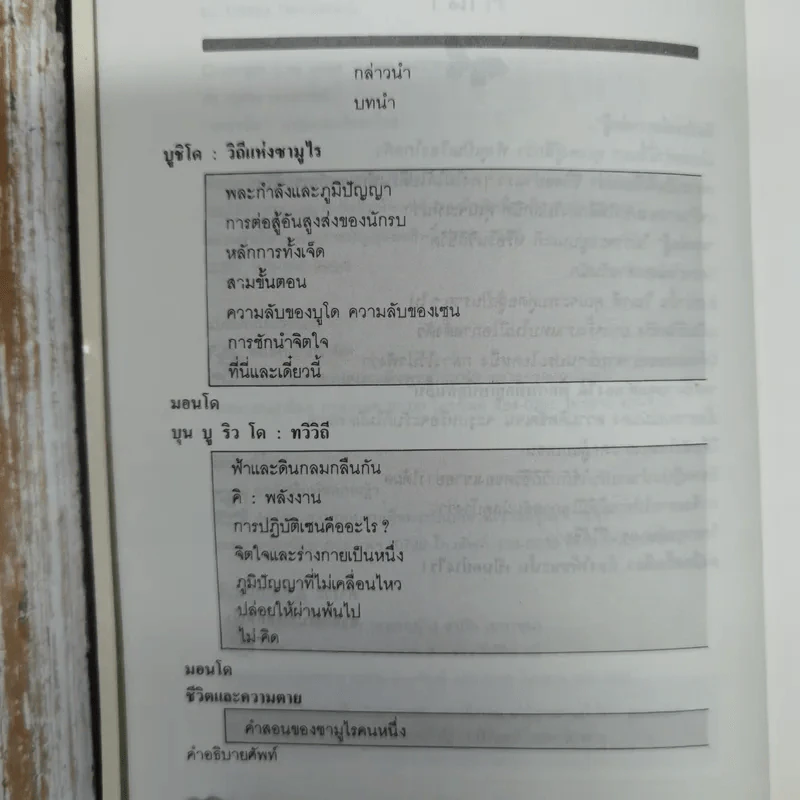 กล่าวนำ
บทนำ
บูชิโด : วิถีแห่งซามูไร
พละกำลังและภูมิปัญญา
การต่อสู้อันสูงส่งของนักรบ
หลักการทั้งเจ็ด
สามขั้นตอน
ความลับของบูโด ความลับของเซน
การชักนำจิตใจ
ที่นี่และเดี๋ยวนี้
มอนโด
บุน บู ริว โด : ทวิวิถี
ฟ้าและดินกลมกลืนกัน
คิ : พลังงาน
การปฏิบัติเซนคืออะไร ?
จิตใจและร่างกายเป็นหนึ่ง
ภูมิปัญญาที่ไม่เคลื่อนไหว
ปล่อยให้ผ่านพ้นไป
ไม่คิด
มอนโด
ชีวิตและความตาย
คำสอนของซามูไรคนหนึ่ง
คำอธิบายศัพท์